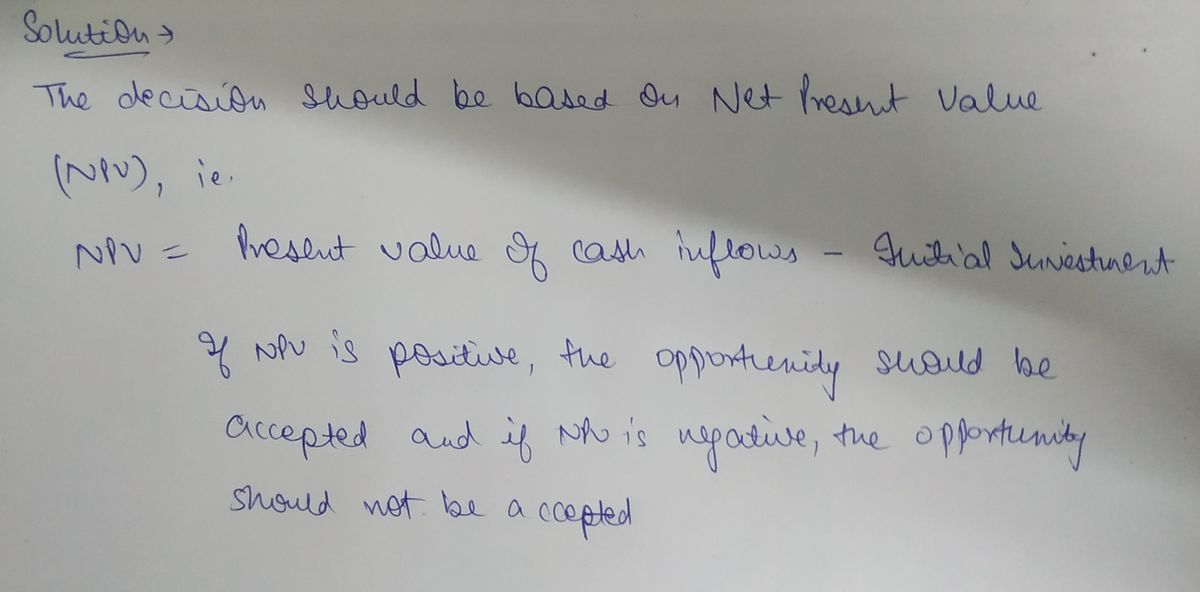 Solution →
The decision should be based on Net Present Value
(NPV), ie.
NPV = Present value of cash inflows - Initial Investment
If NPV is positive, the opportunity should be
accepted and if NPV is negative, the opportunity
should not be accepted